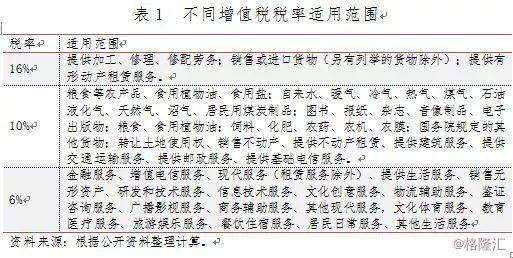 表 1 不同增值税税率适用范围
税率
适用范围
16%
提供加工、修理、修配劳务；销售或进口货物（另有列举的货物除外）；提供有
形动产租赁服务。
10%
粮食等农产品、食用植物油、食用盐；自来水、暖气、冷气、热气、煤气、石油
液化气、天然气、沼气、居民用煤炭制品；图书、报纸、杂志、音像制品、电子
出版物；粮食、食用植物油；饲料、化肥、农药、农机、农膜；国务院规定的其
他货物；转让土地使用权、销售不动产、提供不动产租赁、提供建筑服务、提供
交通运输服务、提供邮政服务、提供基础电信服务。
6%
金融服务、增值电信服务、现代服务（租赁服务除外）、提供生活服务、销售无
形资产、研发和技术服务、信息技术服务、文化创意服务、物流辅助服务、鉴证
咨询服务、广播影视服务、商务辅助服务、其他现代服务，文化体育服务、教育
医疗服务、旅游娱乐服务、餐饮住宿服务、居民日常服务、其他生活服务
资料来源：根据公开资料整理计算。
@格隆汇